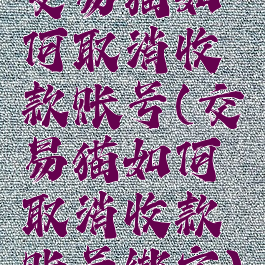 交易猫如
何取消收
款账号(交
易猫如何
取消收款
账号绑定)